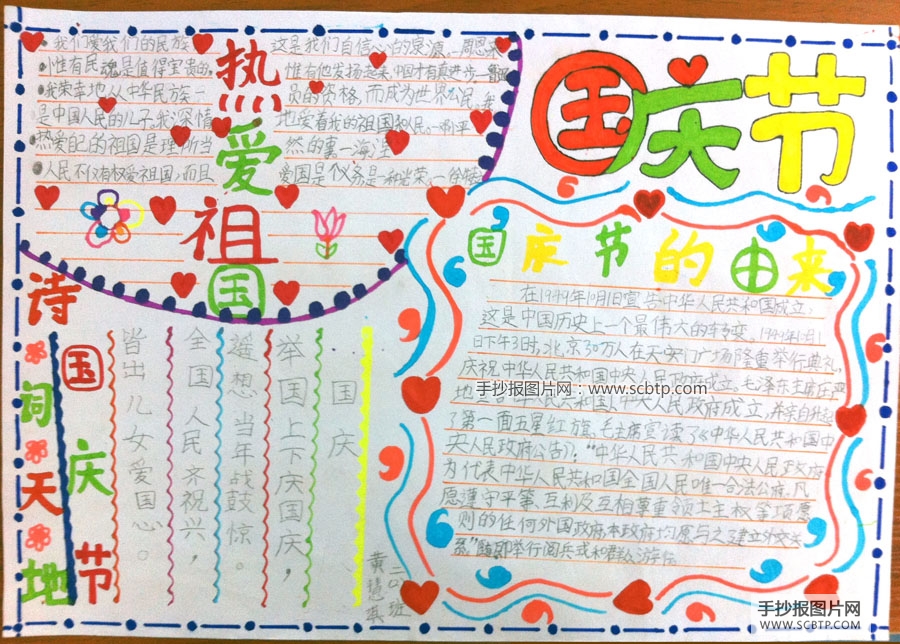 国庆节
热爱祖国
我们爱我们的民族 这是我们自信心的泉源。—周恩来
惟有民魂是值得宝贵的, 惟有他发扬起来,中国才有真进步。—鲁迅
我荣幸地从中华民族一 员的资格,而成为世界公民。我
是中国人民的儿子。我深情 地爱着我的祖国和人民。—邓小平
热爱自己的祖国是理所当 然的事—海涅
人民不仅有权爱祖国,而且 爱国是个义务,是一种光荣。
国庆节的由来
在1949年10月1日宣告中华人民共和国成立,
这是中国历史上一个最伟大的转变。1949年10月1
日下午3时,北京30万人在天安门广场隆重举行典礼,
庆祝中华人民共和国中央人民政府成立。毛泽东主席庄严
地 中华人民共和国、中央人民政府成立,并亲自升起
了第一面五星红旗。毛主席宣读了《中华人民共和国中
央人民政府公告》:“中华人民共和国中央人民政府
为代表中华人民共和国全国人民唯一合法政府。凡
愿遵守平等、互利及互相尊重领土主权等项原
则的任何外国政府,本政府均愿与之建立外交关
系”随即举行阅兵式和群众游行
手抄报图片网:www.scbtp.com
诗词天地
国庆节
国庆
举国上下庆国庆,
遥想当年战鼓惊。
全国人民齐祝兴,
皆出儿女爱国心。
班
黄慧琪
手抄报图片网
WWW.SCBTP.COM